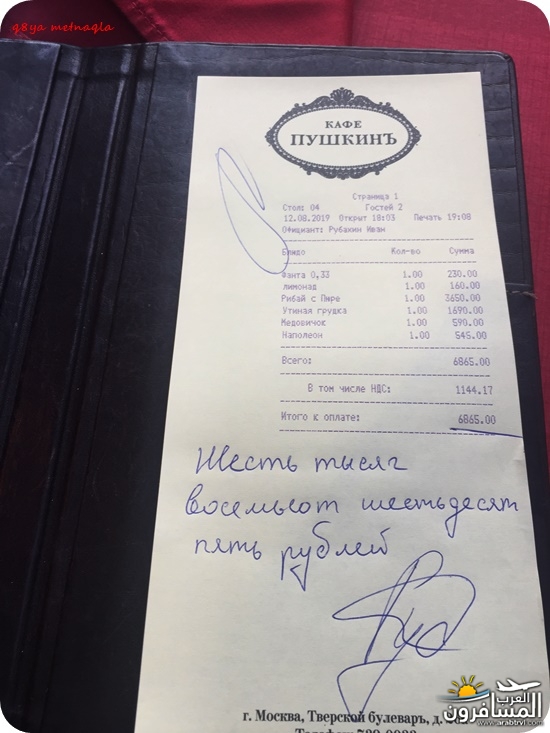 q8ya metnaqla
КАФЕ
ПУШКИНЪ
Страница 1
Стол: 04 Гостей 2
12.08.2019 Открыт 18:03 Печать 19:08
Официант: Рубакин Иван
Блюдо Кол-во Сумма
Фанта 0,33 1.00 230.00
лимонад 1.00 160.00
Рибай с Пюре 1.00 3650.00
Утиная грудка 1.00 1690.00
Медовичок 1.00 590.00
Наполеон 1.00 545.00
Всего: 6865.00
В том числе НДС: 1144.17
Итого к оплате: 6865.00
Шесть тысяч
восемьсот шестьдесят
пять рублей
г. Москва, Тверской бульваръ, д.
العرب
المسافرون
www.arabtrvl.com